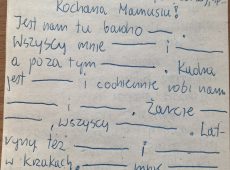 Kochana Mamusiu!
Jest nam tu bardzo ____.
Wszyscy mnie ____ i ____
a poza tym ____. Kadra
jest ____ i codziennie robi nam
____ i ____. Żarcie
____, wszyscy ____. Lat-
ryny też ____ i ____
w krzakach. ____ mnie